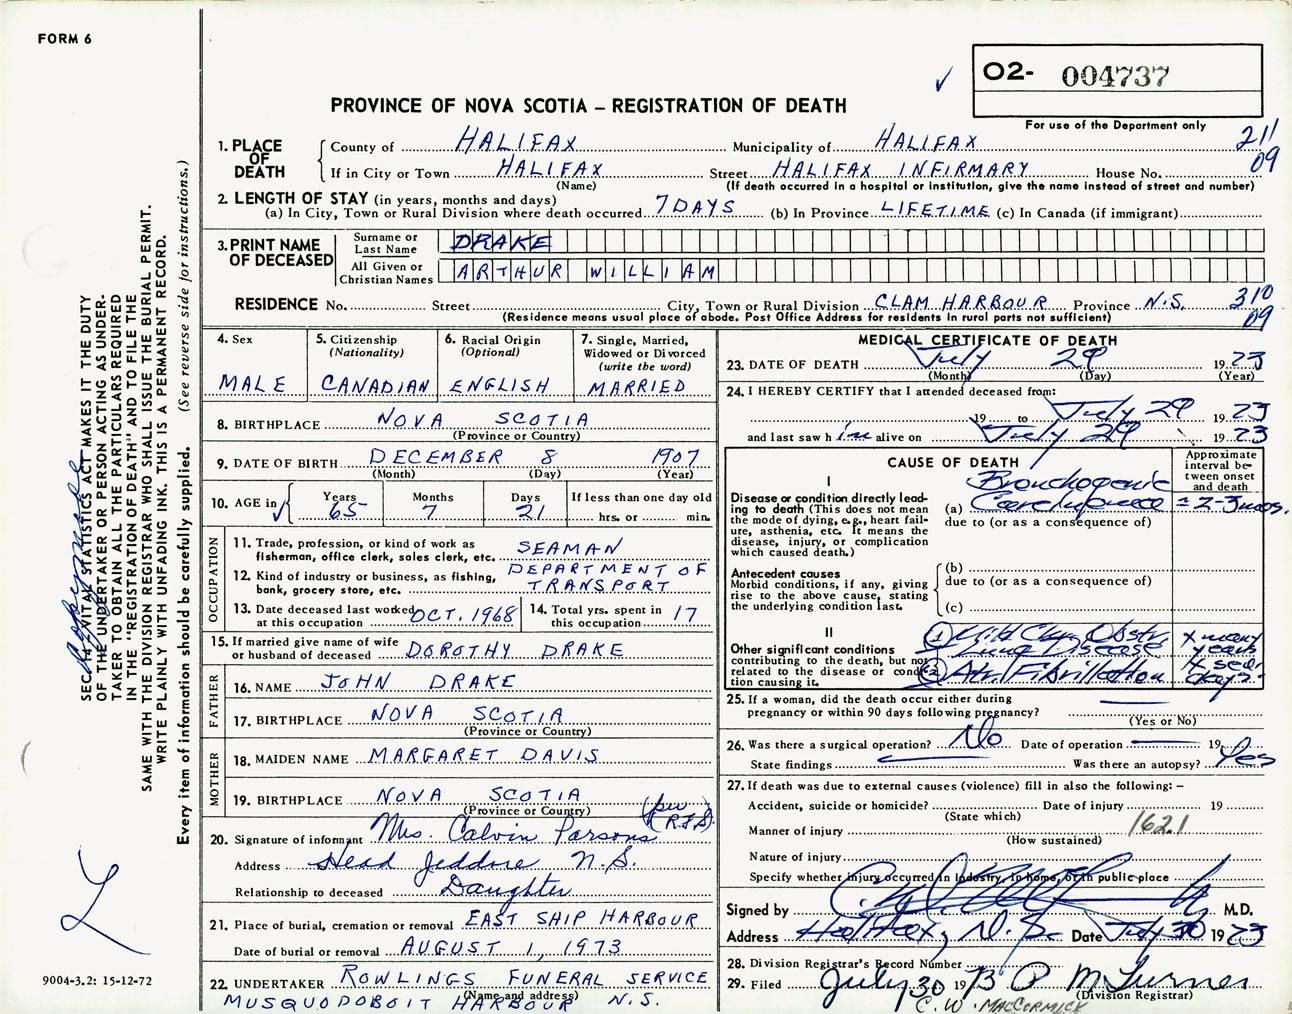 FORM 6
O2- 004737
For use of the Department only
PROVINCE OF NOVA SCOTIA – REGISTRATION OF DEATH
211
09
1. PLACE OF DEATH
County of HALIFAX Municipality of HALIFAX
If in City or Town HALIFAX Street HALIFAX INFIRMARY House No.
(Name) (If death occurred in a hospital or institution, give the name instead of street and number)
2. LENGTH OF STAY (in years, months and days)
(a) In City, Town or Rural Division where death occurred 7 DAYS (b) In Province LIFETIME (c) In Canada (if immigrant)
3. PRINT NAME OF DECEASED
Surname or Last Name DRAKE
All Given or Christian Names ARTHUR WILLIAM
RESIDENCE No. Street City, Town or Rural Division CLAM HARBOUR Province N.S.
(Residence means usual place of abode. Post Office Address for residents in rural parts not sufficient)
310
09
4. Sex MALE
5. Citizenship (Nationality) CANADIAN
6. Racial Origin (Optional) ENGLISH
7. Single, Married, Widowed or Divorced (write the word) MARRIED
8. BIRTHPLACE NOVA SCOTIA
(Province or Country)
9. DATE OF BIRTH DECEMBER 8 1907
(Month) (Day) (Year)
10. AGE in Years 65 Months 7 Days 21 If less than one day old hrs. or min.
OCCUPATION
11. Trade, profession, or kind of work as fisherman, office clerk, sales clerk, etc. SEAMAN
12. Kind of industry or business, as fishing, bank, grocery store, etc. DEPARTMENT OF TRANSPORT
13. Date deceased last worked at this occupation OCT. 1968
14. Total yrs. spent in this occupation 17
15. If married give name of wife or husband of deceased DOROTHY DRAKE
FATHER
16. NAME JOHN DRAKE
17. BIRTHPLACE NOVA SCOTIA
(Province or Country)
MOTHER
18. MAIDEN NAME MARGARET DAVIS
19. BIRTHPLACE NOVA SCOTIA
(Province or Country)
(per R.F.S.)
20. Signature of informant Mrs. Calvin Parsons
Address Head Jeddore N.S.
Relationship to deceased Daughter
21. Place of burial, cremation or removal EAST SHIP HARBOUR
Date of burial or removal AUGUST 1, 1973
22. UNDERTAKER ROWLINGS FUNERAL SERVICE
(Name and address)
MUSQUODOBOIT HARBOUR N.S.
MEDICAL CERTIFICATE OF DEATH
23. DATE OF DEATH July 29 1973
(Month) (Day) (Year)
24. I HEREBY CERTIFY that I attended deceased from:
19 to July 29 1973
and last saw him alive on July 29 1973
CAUSE OF DEATH
Approximate interval between onset and death
I
Disease or condition directly leading to death (This does not mean the mode of dying, e.g., heart failure, asthenia, etc. It means the disease, injury, or complication which caused death.)
(a) Bronchogenic Carcinoma = 2-3 mos.
due to (or as a consequence of)
Antecedent causes
Morbid conditions, if any, giving rise to the above cause, stating the underlying condition last.
(b)
due to (or as a consequence of)
(c)
II
Other significant conditions contributing to the death, but not related to the disease or condition causing it.
(1) Mild Chr. Obstr. Lung Disease x many years
(2) Atr. Fibrillation days
25. If a woman, did the death occur either during pregnancy or within 90 days following pregnancy?
(Yes or No)
26. Was there a surgical operation? No Date of operation 19
State findings Was there an autopsy? Yes
27. If death was due to external causes (violence) fill in also the following: –
Accident, suicide or homicide? Date of injury 19
(State which)
Manner of injury 162.1
(How sustained)
Nature of injury
Specify whether injury occurred in industry, in home, or in public place
Signed by M.D.
Address Halifax, N.S. Date July 30 1973
28. Division Registrar's Record Number
29. Filed July 30 1973 P M Turner
(Division Registrar)
C. W. MacCORMICK
SEC. 14 – VITAL STATISTICS ACT MAKES IT THE DUTY
OF THE UNDERTAKER OR PERSON ACTING AS UNDERTAKER
TO OBTAIN ALL THE PARTICULARS REQUIRED
IN THE "REGISTRATION OF DEATH" AND TO FILE THE
SAME WITH THE DIVISION REGISTRAR WHO SHALL ISSUE THE BURIAL PERMIT.
WRITE PLAINLY WITH UNFADING INK. THIS IS A PERMANENT RECORD.
Every item of information should be carefully supplied. (See reverse side for instructions.)
9004-3.2: 15-12-72